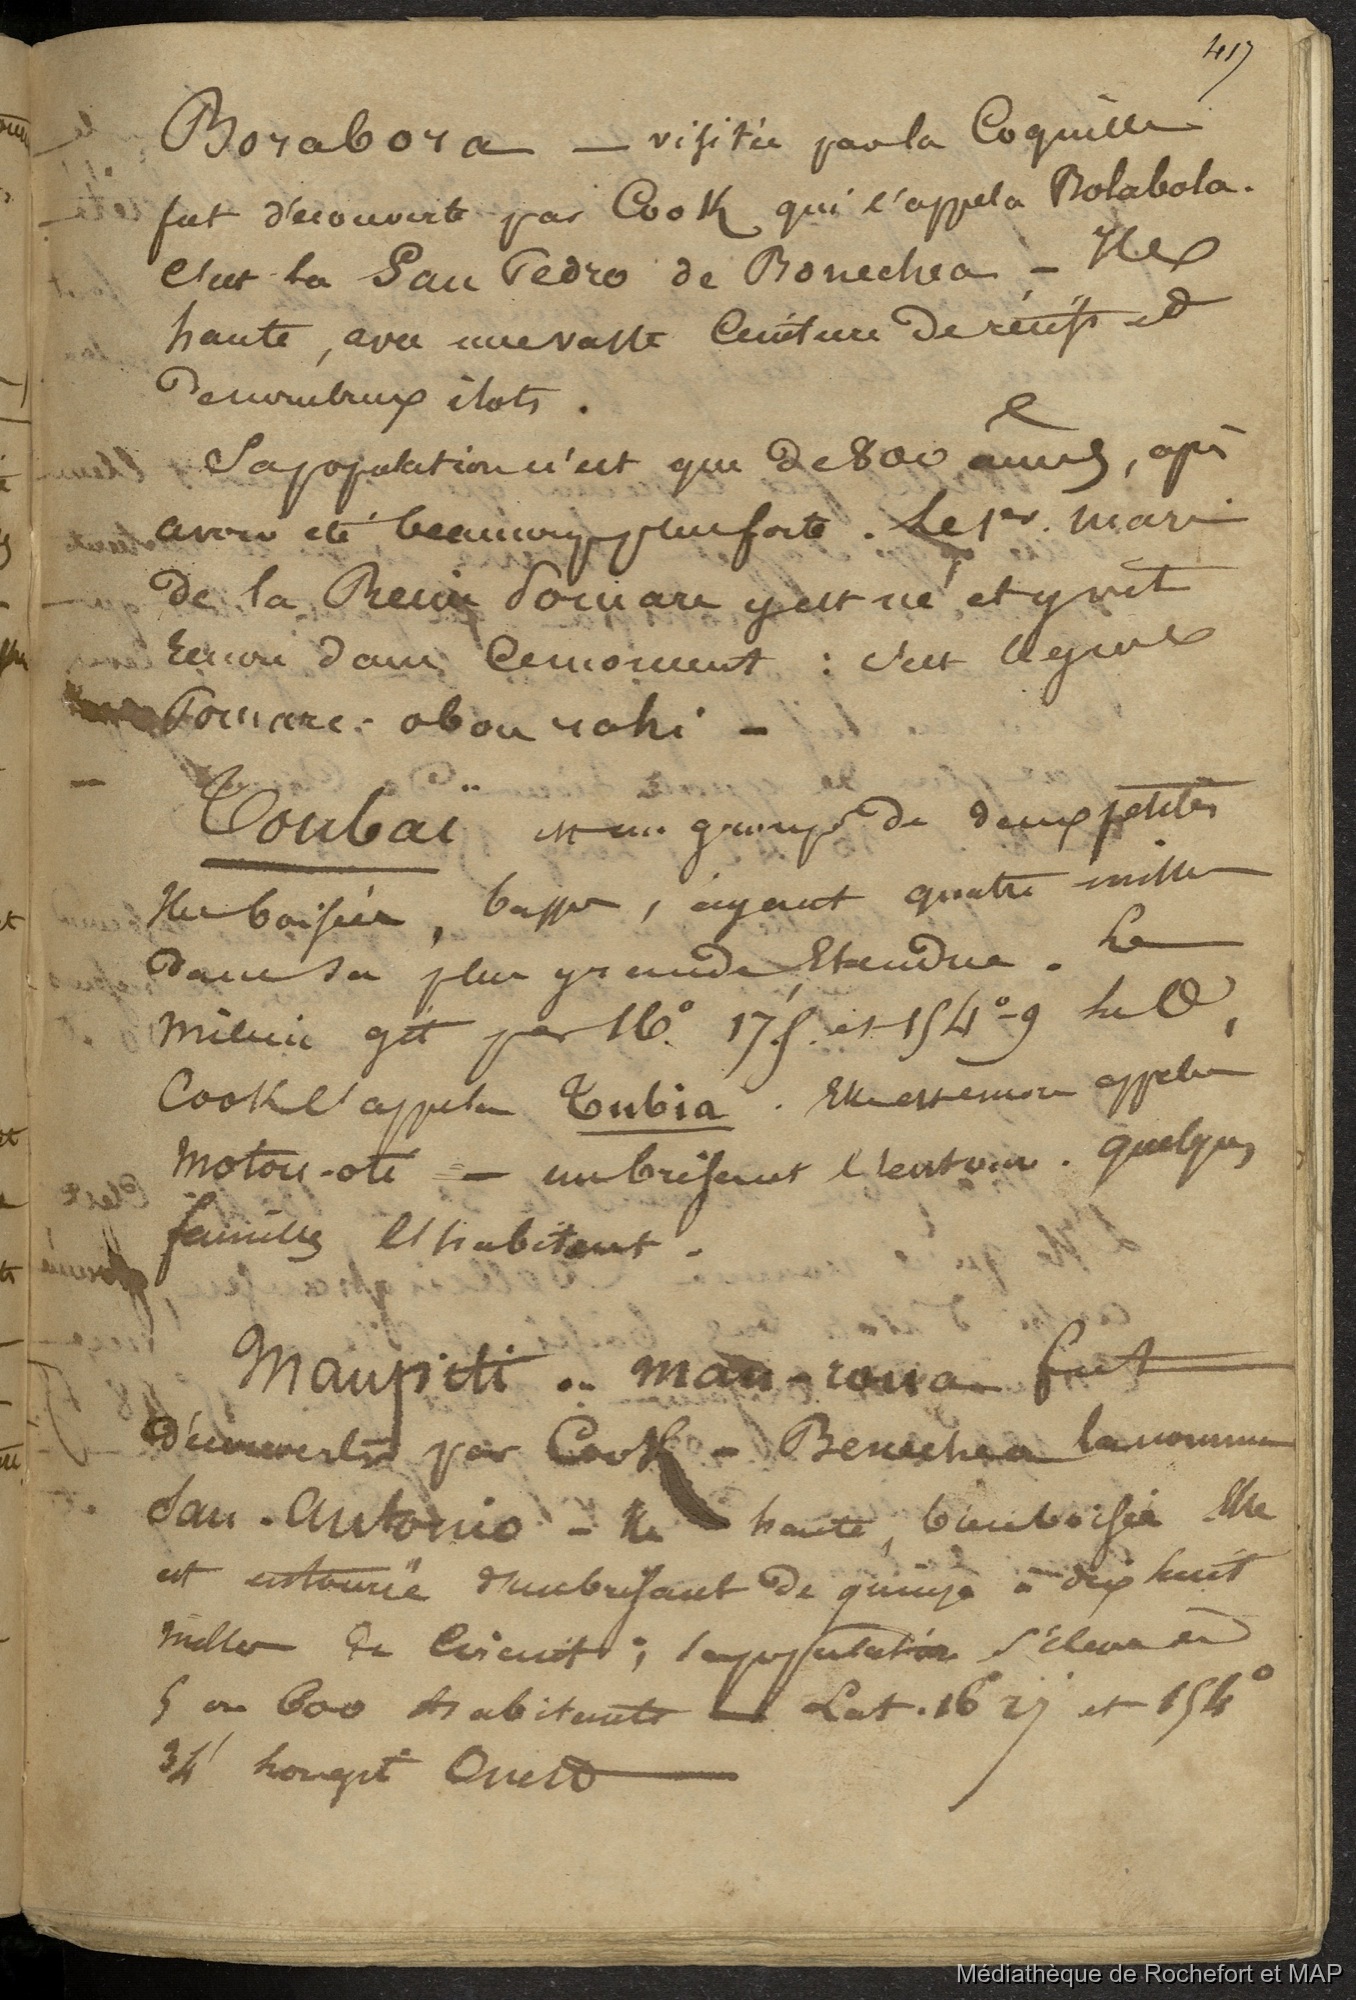 417
Borabora — visitée par la Coquille
fut découverte par Cook qui l'appela Bolabola.
C'est la San Pedro de Bonechea — Ile
haute, avec une vaste Ceinture de récifs et
de nombreux ilots.
Sa population n'est que de 800 âmes, aps
avoir été beaucoup plus forte. Le 1er. mari
de la Reine Pomare y est né et y vit
Encore dans ce moment : c'est le gros
Pomare-abou rahi —
Toubaï est un groupe de deux petites
Iles boisées, basses, ayant quatre milles
dans sa plus grande Etendue. Le
milieu git par 16° 17' S. et 154°-9 de O,
Cook l'appela Tubia. Elle est encore appelée
Motou-oti — un brisant l'entoure. quelques
familles l'habitent.
Maupiti ou mau-roua fut
découverte par Cook - Bonechea la nomma
San-Antonio - Ile haute, bien boisée Elle
est entourée d'un brisant de quinze à dix huit
milles de Circuit; la population s'élève à
5 ou 600 habitants — Lat. 16° 27' et 154°
34' longit Ouest
Médiathèque de Rochefort et MAP